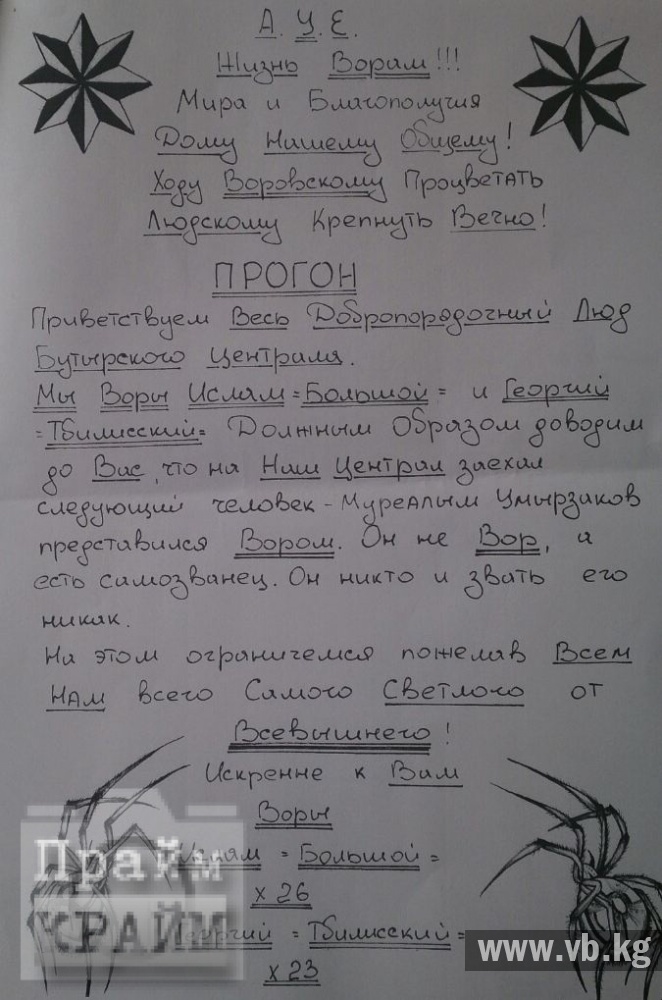 А. У. Е.
Жизнь Ворам!!!
Мира и Благополучия
Дому Нашему Общему!
Ходу Воровскому Процветать
Людскому Крепнуть Вечно!
ПРОГОН
Приветствуем Весь Добропорядочный Люд
Бутырского Централа.
Мы Воры Ислям=Большой= и Георгий
=Тбилисский= Должным Образом доводим
до Вас, что на Наш Централ заехал
следующий человек - Муреалым Умырзаков
представился Вором. Он не Вор, а
есть самозванец. Он никто и звать его
никак.
На этом ограничемся пожелав Всем
НАМ всего Самого Светлого от
Всевышнего!
Искренне к Вам
Воры
Ислям = Большой =
х 26
Георгий = Тбилисский =
х 23
Прайм
КРАЙМ
www.vb.kg